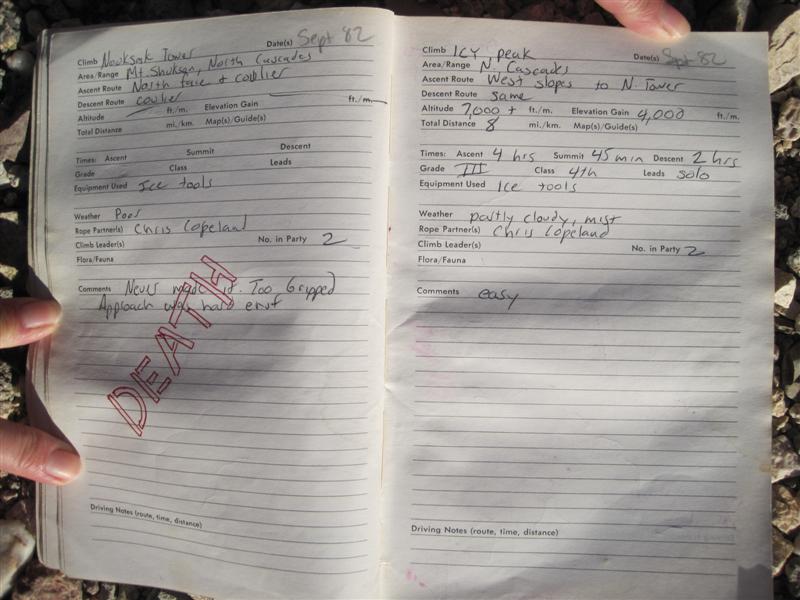 Climb Nooksak Tower Date(s) Sept 82
Area/Range Mt. Shuksan, North Cascades
Ascent Route North face & coulier
Descent Route coulier
Altitude ft./m. Elevation Gain ft./m.
Total Distance mi./km. Map(s)/Guide(s)
Times: Ascent Summit Descent
Grade Class Leads
Equipment Used Ice tools
Weather Poor
Rope Partner(s) Chris Copeland
Climb Leader(s) No. in Party 2
Flora/Fauna
Comments Never made it. Too Gripped
Approach was hard enuf
DEATH
Driving Notes (route, time, distance)
Climb ICY peak Date(s) Sept 82
Area/Range N. Cascades
Ascent Route West slopes to N. Tower
Descent Route same
Altitude 7,000 + ft./m. Elevation Gain 4,000 ft./m.
Total Distance 8 mi./km. Map(s)/Guide(s)
Times: Ascent 4 hrs Summit 45 min Descent 2 hrs
Grade III Class 4th Leads solo
Equipment Used Ice tools
Weather partly cloudy, mist
Rope Partner(s) Chris Copeland
Climb Leader(s) No. in Party 2
Flora/Fauna
Comments easy
Driving Notes (route, time, distance)